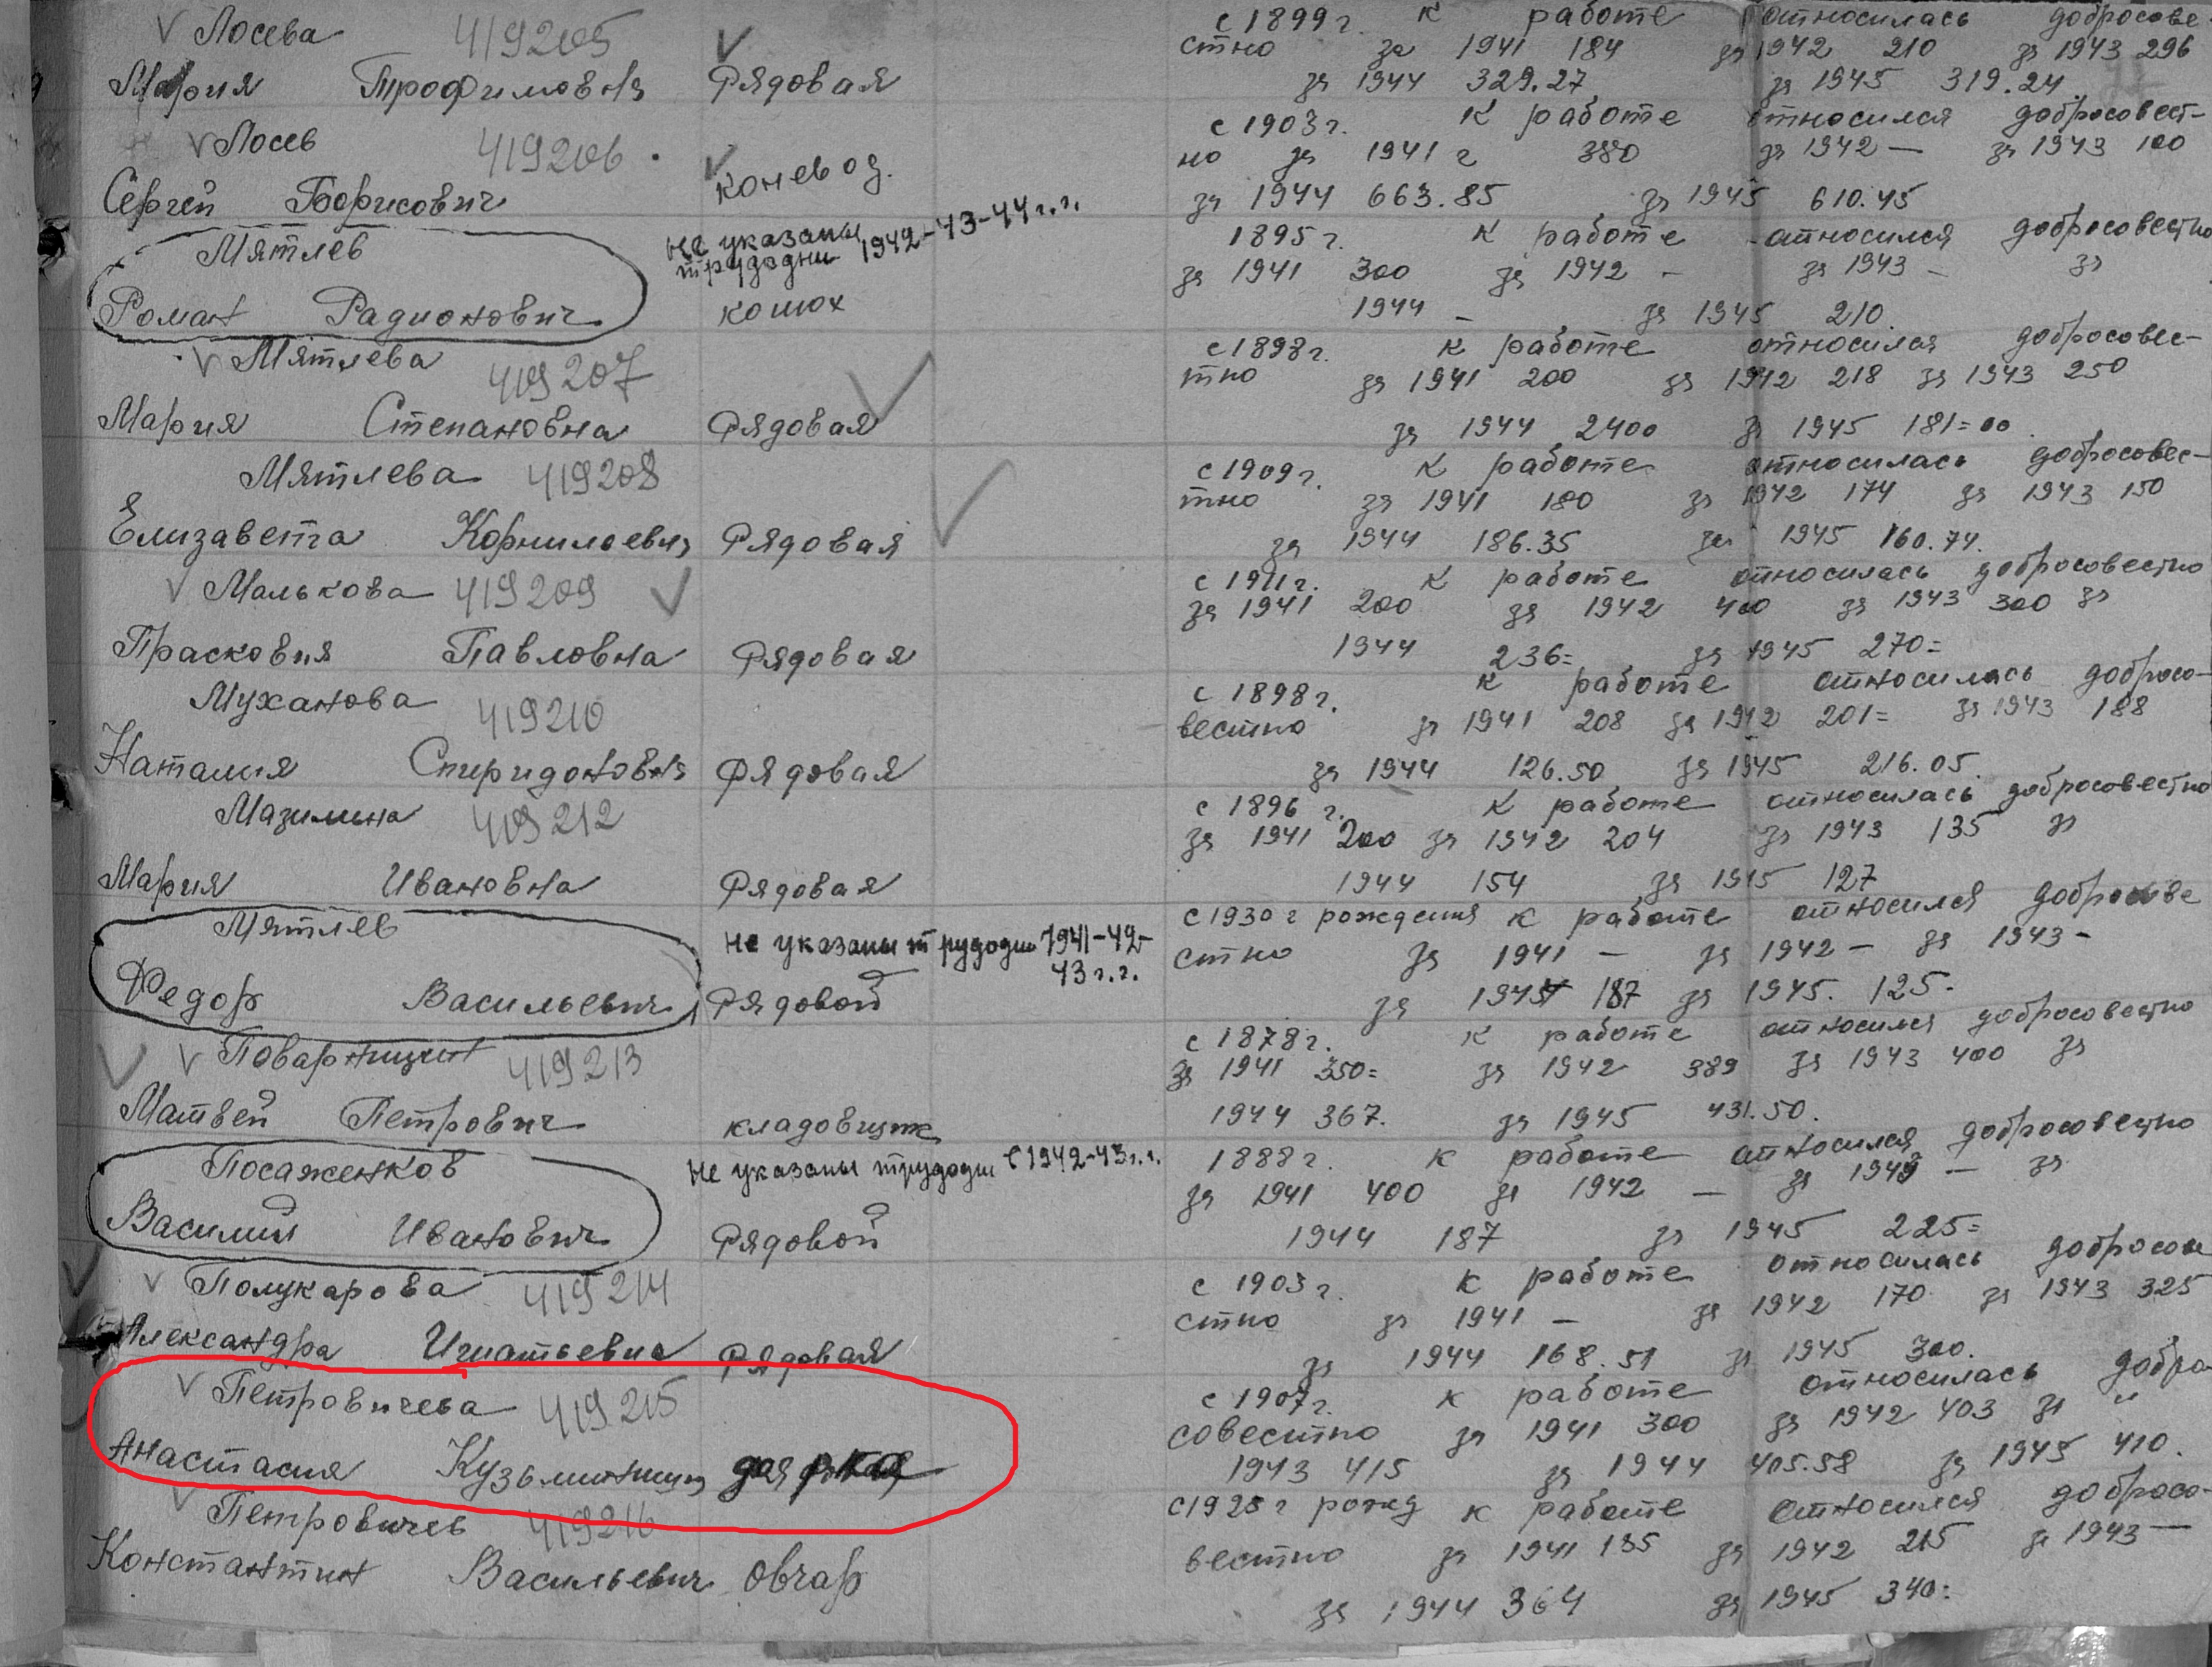 Лосева 419205 с 1899 г. к работе относилась добросове-
стно за 1941 184 за 1942 210 за 1943 296
Мария Трофимовна Рядовая за 1944 329.27 за 1945 319.24
Лосев 419206 с 1903 г. к работе относился добросовест-
но за 1941 г 380 за 1942 — за 1943 100
Сергей Борисович коневод. за 1944 663.85 за 1945 610.45
Мятлев не указаны трудодни 1942-43-44 г.г. 1895 г. к работе относился добросовестно
за 1941 300 за 1942 - за 1943 - за
Роман Радионович конюх 1944 - за 1945 210
Мятлева 419207 с 1898 г. к работе относился добросовес-
тно за 1941 200 за 1942 218 за 1943 250
Мария Степановна Рядовая за 1944 2400 за 1945 181=00
Мятлева 419208 с 1909 г. к работе относилась добросовес-
тно за 1941 180 за 1942 174 за 1943 150
Елизавета Корнилоевна Рядовая за 1944 186.35 за 1945 160.74.
Малькова 419209 с 1911 г. к работе относилась добросовестно
за 1941 200 за 1942 400 за 1943 300 за
Прасковия Павловна Рядовая 1944 236= за 1945 270=
Муханова 419210 с 1898 г. к работе относилась добросо-
вестно за 1941 208 за 1942 201= за 1943 188
Наталия Спиридоновна Рядовая за 1944 126.50 за 1945 216.05
Мазилина 419212 с 1896 г. к работе относилась добросовестно
за 1941 200 за 1942 204 за 1943 135 за
Мария Ивановна Рядовая 1944 154 за 1945 127
Мятлев не указаны трудодни 1941-42-43 г.г. с 1930 г рождения к работе относился добросове
стно за 1941 — за 1942 — за 1943 -
Федор Васильевич Рядовой за 1944 187 за 1945. 125.
Поварницин 419213 с 1878 г. к работе относился добросовестно
за 1941 350= за 1942 389 за 1943 400 за
Матвей Петрович кладовщик 1944 367. за 1945 431.50.
Посаженков не указаны трудодни с 1942-43 г.г. 1888 г. к работе относился добросовестно
за 1941 400 за 1942 — за 1943 — за
Василий Иванович Рядовой 1944 187 за 1945 225=
Полукарова 419214 с 1903 г. к работе относилась добросове
стно за 1941 — за 1942 170 за 1943 325
Александра Игнатьевна Рядовая за 1944 168.51 за 1945 300.
Петровичева 419215 с 1907 г. к работе относилась добро-
совестно за 1941 300 за 1942 403 за "
Анастасия Кузьминична доярка 1943 415 за 1944 405.58 за 1945 410.
Петровичев 419216 с 1925 г рожд к работе относился добросо-
вестно за 1941 135 за 1942 215 за 1943 —
Константин Васильевич Овчар за 1944 364 за 1945 340=